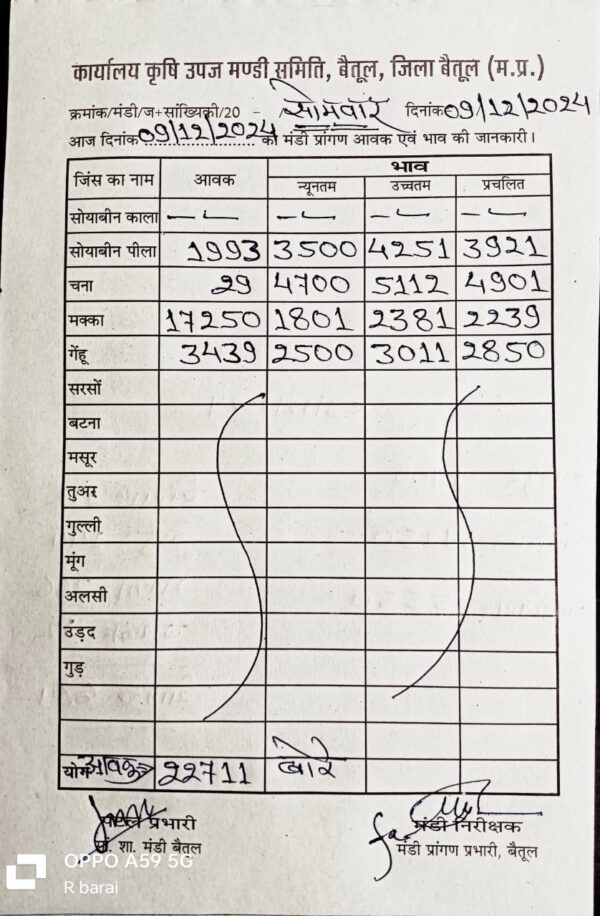 कार्यालय कृषि उपज मण्डी समिति, बैतूल, जिला बैतूल (म.प्र.)
क्रमांक/मंडी/ज+सांख्यिकी/20 - सोमवार दिनांक 09/12/2024
आज दिनांक 09/12/2024 को मंडी प्रांगण आवक एवं भाव की जानकारी।
जिंस का नाम आवक भाव
न्यूनतम उच्चतम प्रचलित
सोयाबीन काला — — — —
सोयाबीन पीला 1993 3500 4251 3921
चना 29 4700 5112 4901
मक्का 17250 1801 2381 2239
गेंहू 3439 2500 3011 2850
सरसों
बटना
मसूर
तुअर
गुल्ली
मूंग
अलसी
उड़द
गुड़
योग आवक 22711 बोरे
प्रभारी मंडी निरीक्षक
शा. मंडी बैतूल मंडी प्रांगण प्रभारी, बैतूल
OPPO A59 5G
R barai